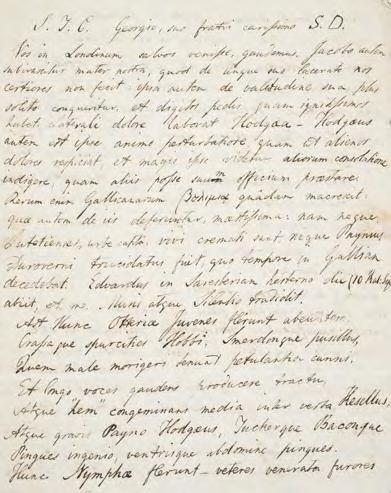 S. T. C. Georgio, suo fratri carissimo S. D.
Vos in Londinum salvos venisse, gaudemus. Jacobo autem
subirascitur mater nostra, quod de ungue suo lacerato nos
certiores non fecit ipsa autem de valitudine sua plus
solito conqueritur, et digitos pedis quam rigidissimos
habet. Laterali dolore laborat Hodgæa – Hodgæus
autem est ipse animi perturbatione, quam et alienos
dolores respiciat et magis ipse videtur aliorum consolatione
indigere, quam aliis posse suum officium præstare.
Rerum enim Gallicanarum quadam macrescit:
quæ autem de iis deferuntur, mæstissima: nam neque
Lutetienses, urbe capta, vivi cremati sunt neque Paynus
trucidatus fuit, quo tempore in Galliam
decedebat. Edvardus in Saresberiam hesterno die
abiit, et me tradidit.
Ast Hunc Ottriæ Juvenes flerunt abeuntem.
Crapaque spurcities Hobbi, Smerdonque pusillus,
Quem male morigeri tenuat petulantia cunni.
Et longo voces gaudens producere tractu,
Atque "hem" congeminans media inter verba Kesellus.
Atque gravis Payno Hodgæus, Tucherque Baconque
Pingues ingenio, ventrisque abdomine pingues.
Hunc Nymphæ flerunt – veteres venerata furores